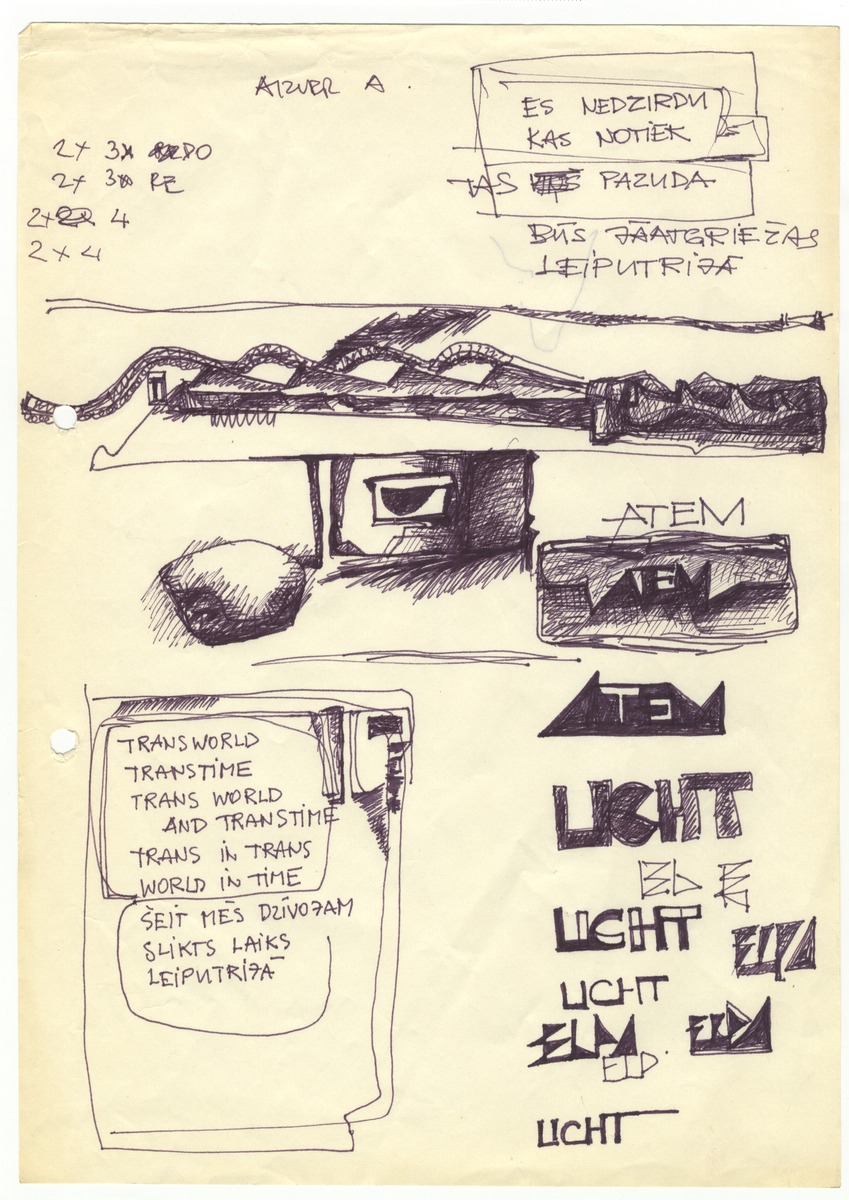 AIZVER A
ES NEDZIRDU
KAS NOTIEK
TAS VIŅŠ PAZUDA
BŪS JĀATGRIEŽAS
LEIPUTRIJĀ
2x 3x DO
2x 3x RE
2x 4
2x4
ATEM
ATEM
ATEM
TRANSWORLD
TRANSTiME
TRANS WORLD
AND TRANSTiME
TRANS iN TRANS
WORLD iN TiME
ŠEiT MĒS DZĪVOJAM
SLiKTS LAiKS
LEiPUTRiJĀ
LICHT
LICHT
LICHT
LICHT